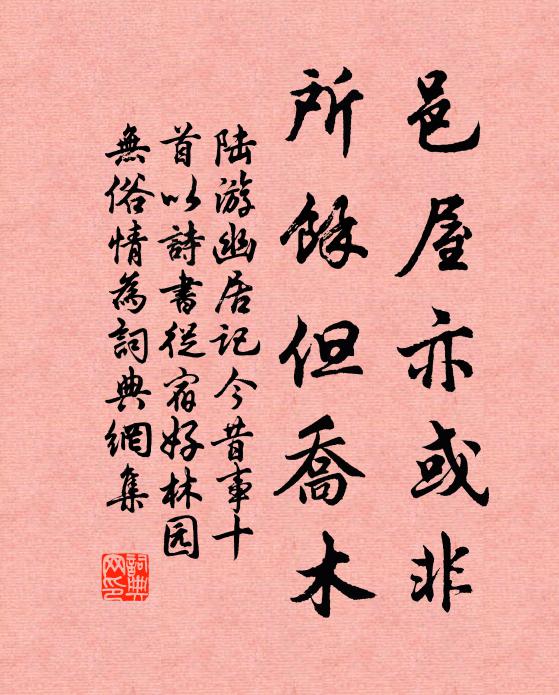 邑屋亦或非
所餘但喬木
陆游幽居记今昔事十
首以詩書從宿好林园
無俗情為詞典網集
詞典网印